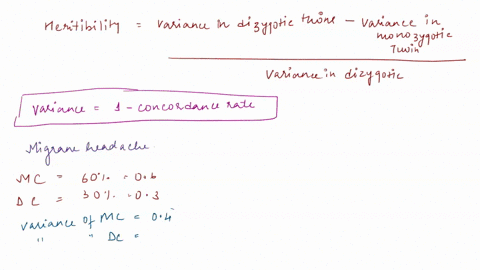 Heritibility = Variance in dizygotic twins - Variance in monozygotic Twin
Variance in dizygotic
Variance = 1 - concordance rate
Migrane headache
MC = 60% = 0.6
DC = 30% = 0.3
Variance of MC = 0.4
" " DC =